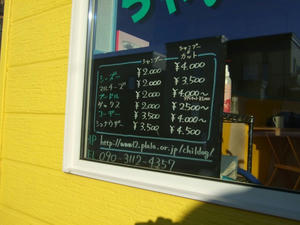 シャンプー シャンプー
カット
シーズー ¥2,000 ¥4,000
マルチーズ ¥2,000 ¥3,500
プードル ¥2,000 ¥4,000〜
ダックス ¥2,000 ¥2,500
コーギー ¥3,500 ¥4,000〜
シュナウザー ¥3,500 ¥4,500
HP http://www12.plala.or.jp/childog/
TEL 090-3112-4357